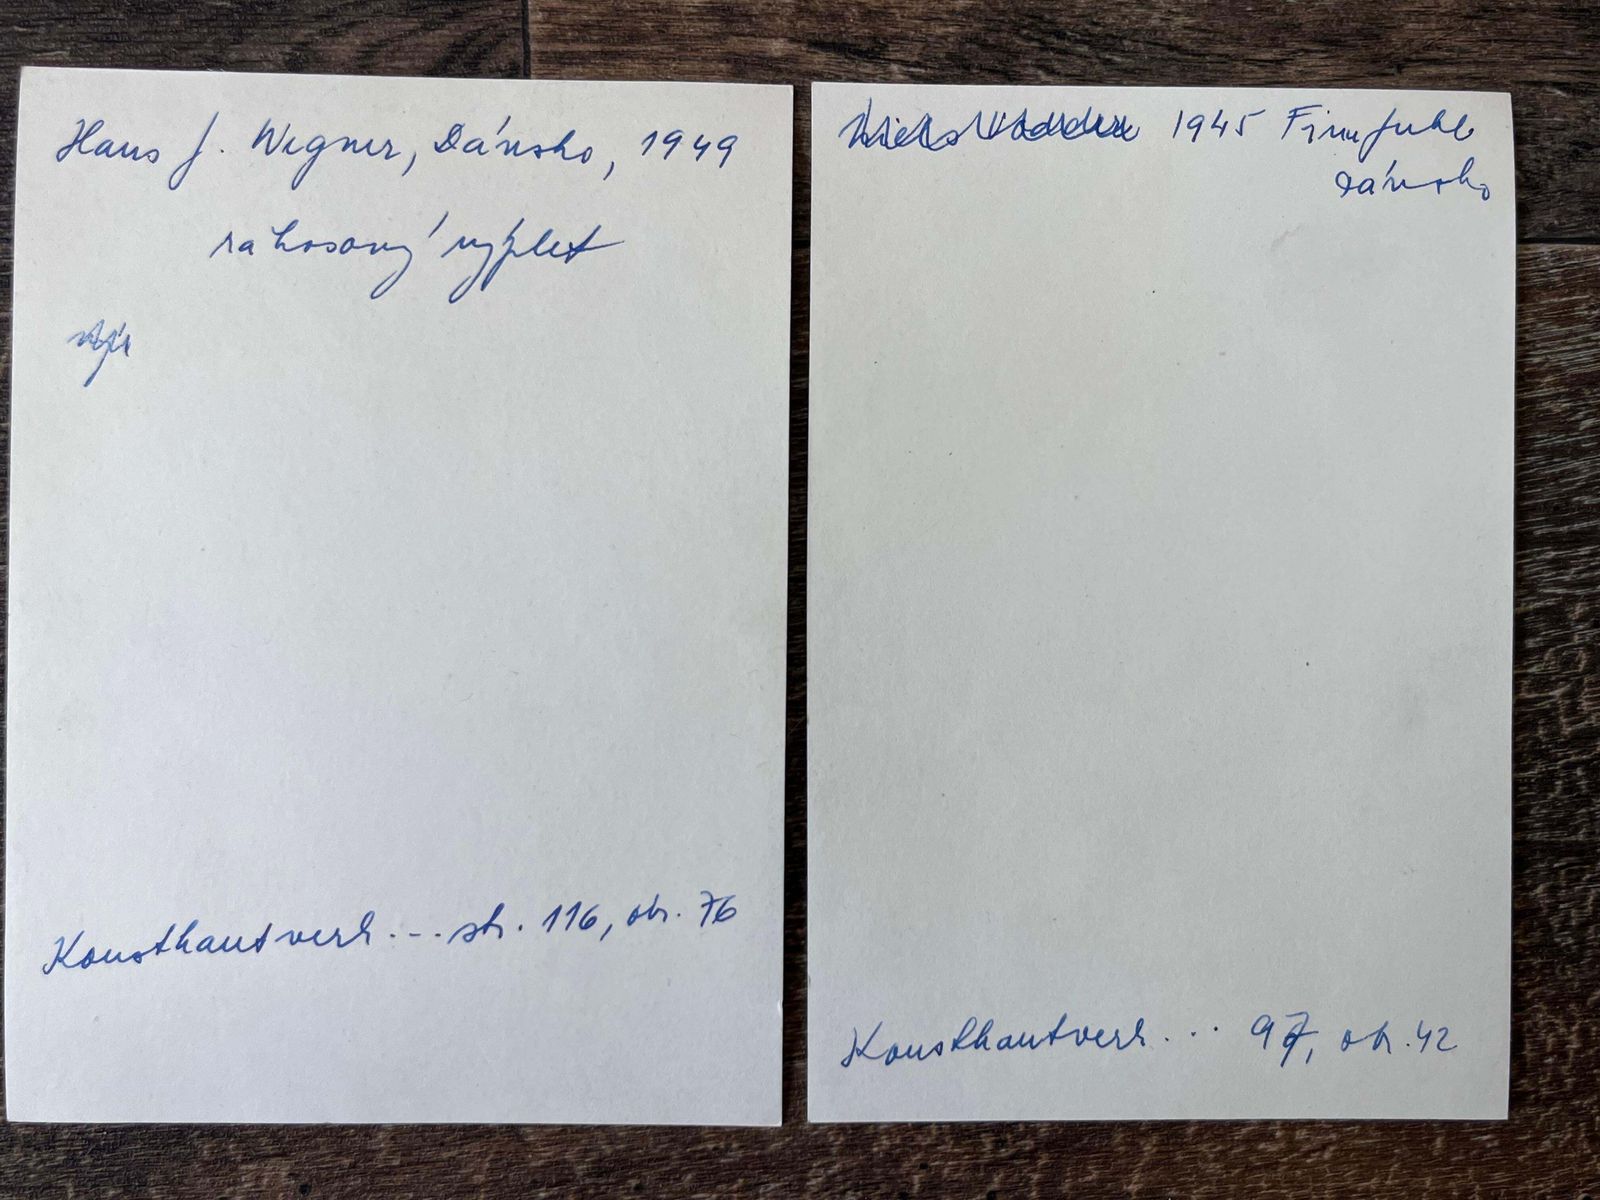 Hans J. Wegner, Dánsko, 1949
rákosový výplet
Konsthantverk... str. 116, obr. 76
Niels Vodder 1945 Finn Juhl
Dánsko
Konsthantverk... 97, obr. 42